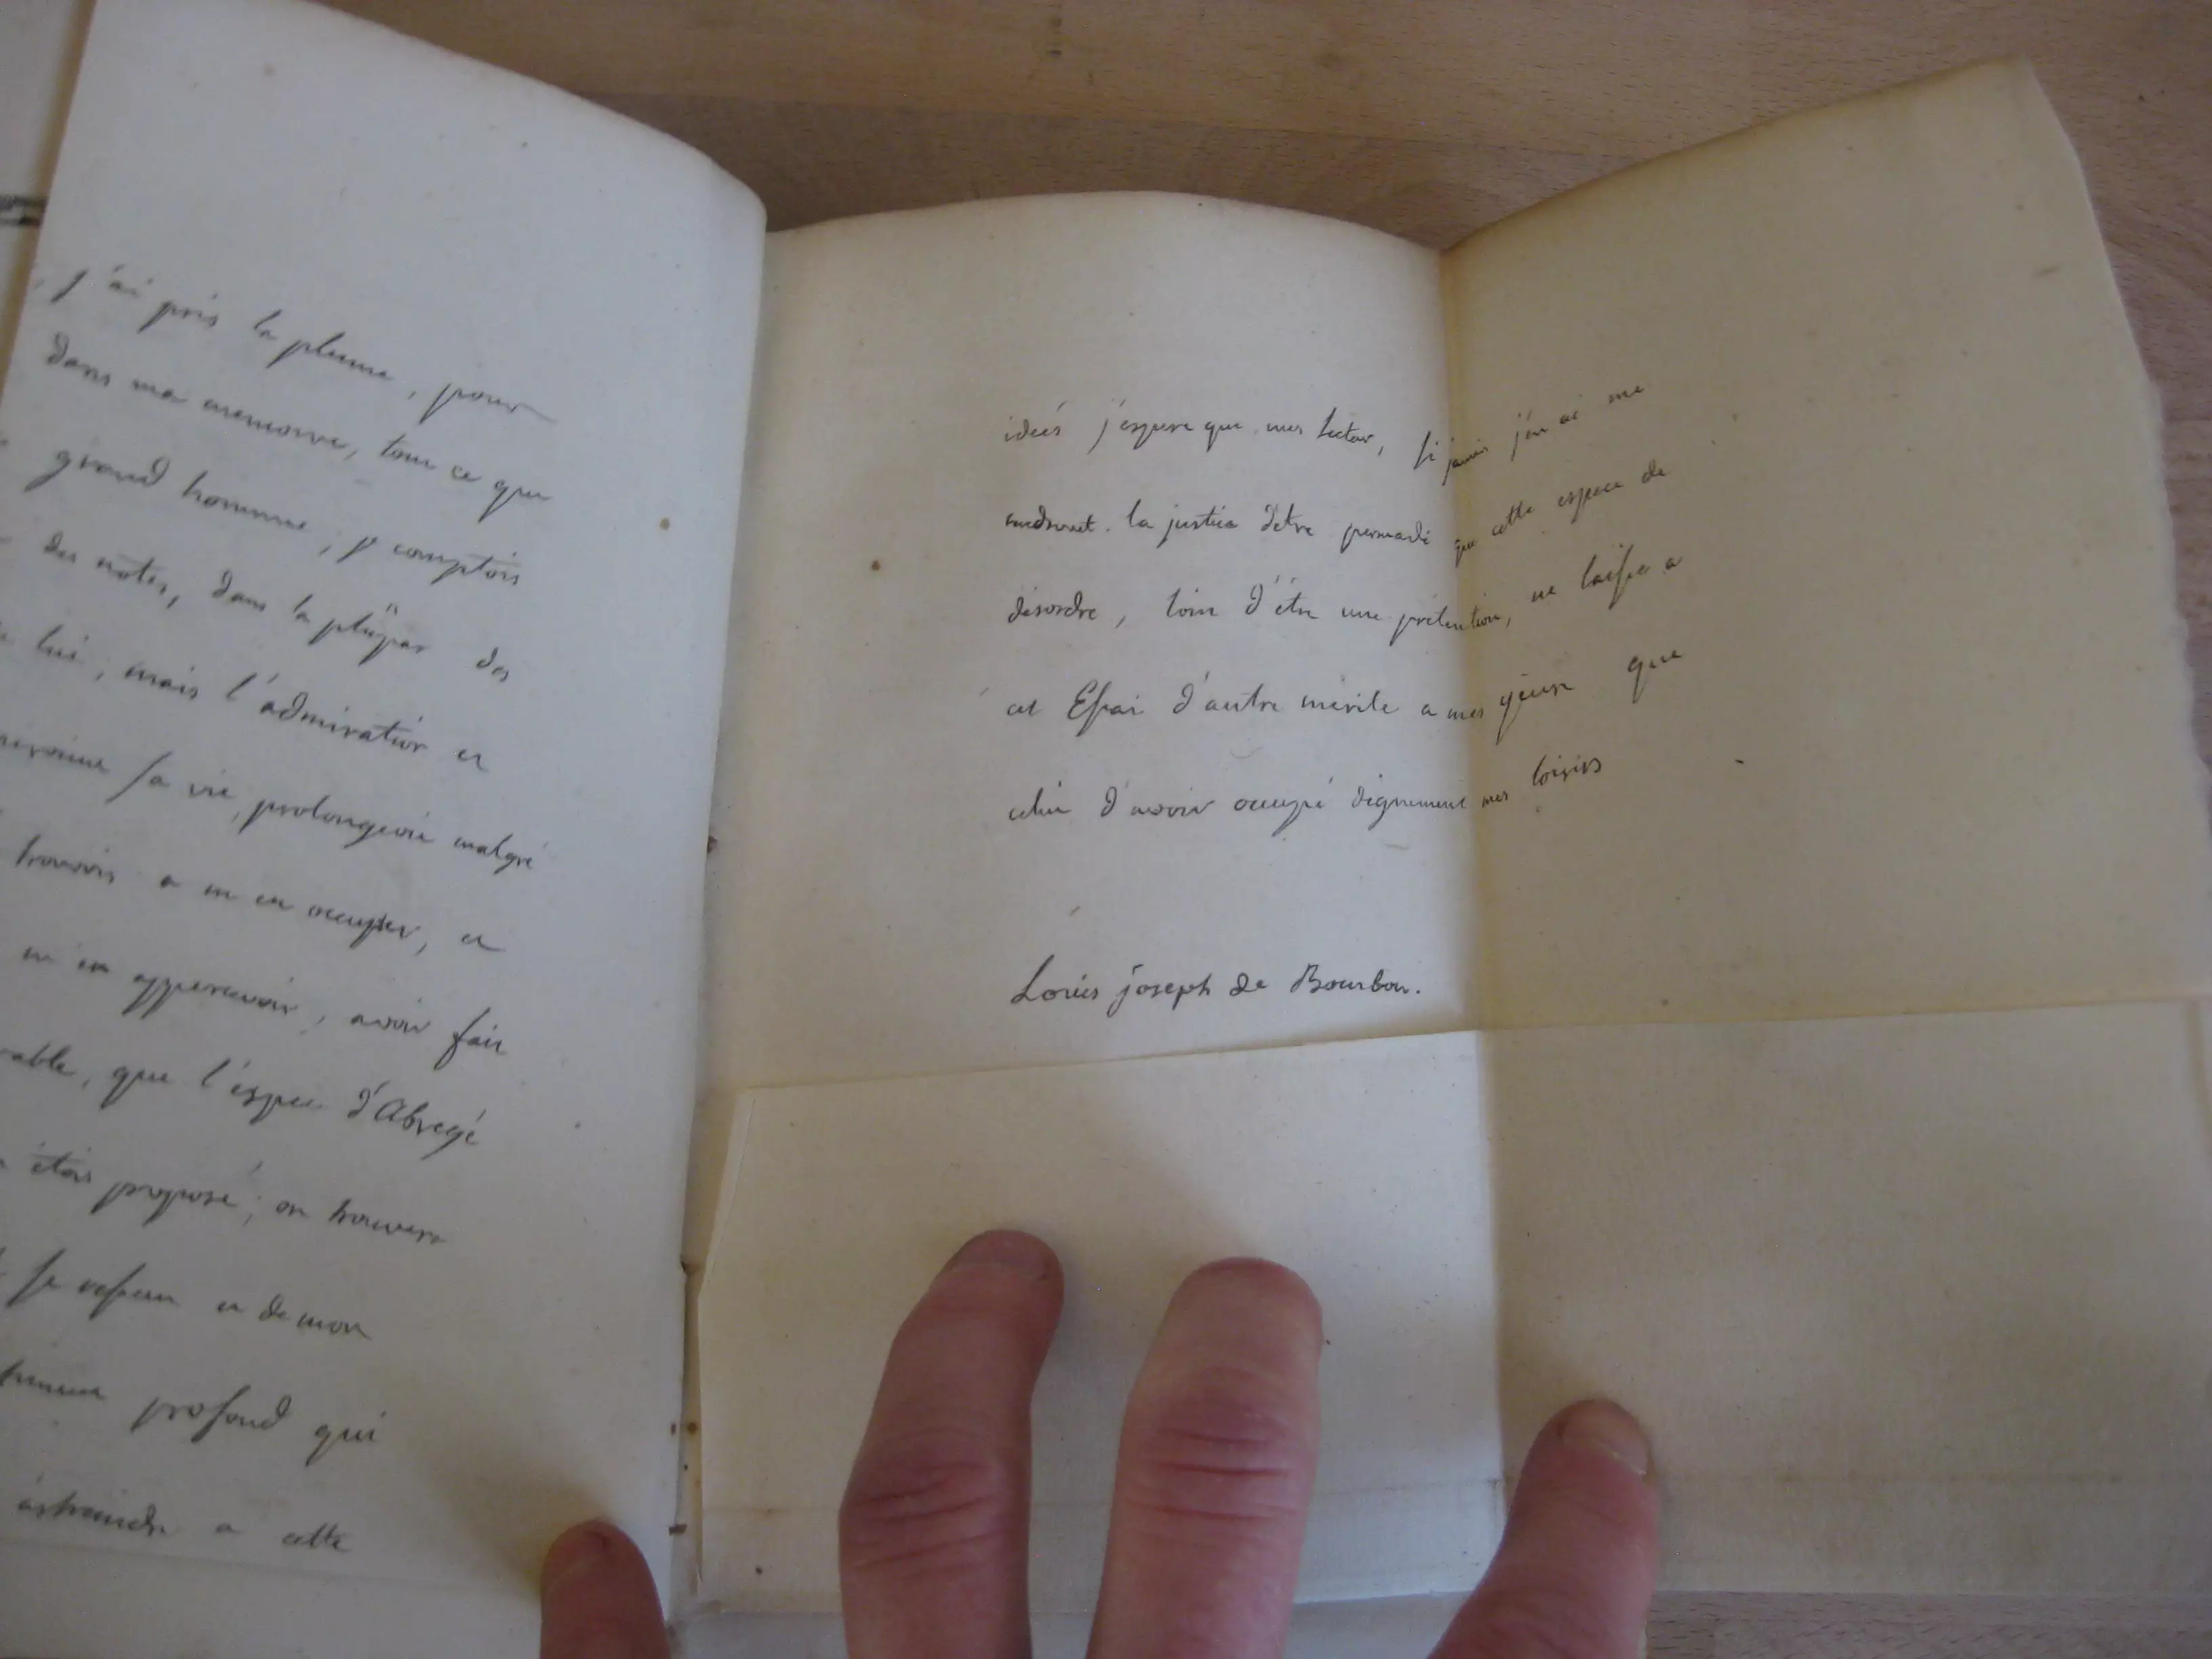 j'ai pris la plume, pour
dans ma memoire, tout ce que
grand homme, je comptois
des notes, dans la plûpar des
lui, mais l'admiration et
sa vie, prolongeoit malgré
trouvois a m'en occuper, et
m'en appercevoir, avoir fait
que l'espece d'Abregé
étois proposé; on trouvera
se et de mon
profond qui
astraindre a cette
ideés j'espere que mes lecteurs, si jamais j'en ai me
rendront la justice d'etre persuadé que cette espece de
désordre, loin d'être une prétention, ne laisse a
cet Essai d'autre mérite a mes yeux que
celui d'avoir occupé dignement mes loisirs
Louis joseph de Bourbon.